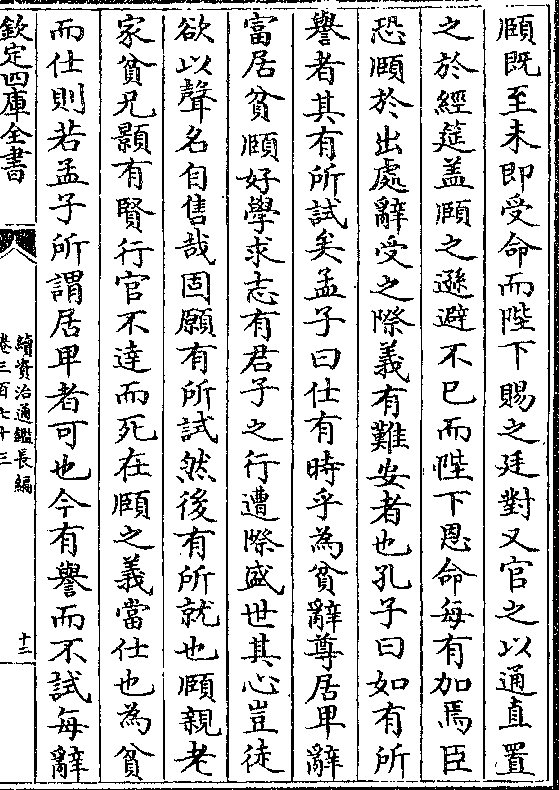 頤既至未即受命而陛下賜之廷對又官之以通直置
之於經筵盖頤之遜避不已而陛下恩命每有加焉臣
恐頤於出處辭受之際義有難安者也孔子曰如有所
譽者其有所試矣孟子曰仕有時乎為貧辭尊居卑辭
富居貧頤好學求志有君子之行遭際盛世其心豈徒
欲以聲名自售哉固願有所試然後有所就也頤親老
家貧兄顥有賢行官不達而死在頤之義當仕也為貧
而仕則若孟子所謂居卑者可也今有譽而不試每辭
欽定四庫全書
續資治通鑑長編
卷三百七十三
十二